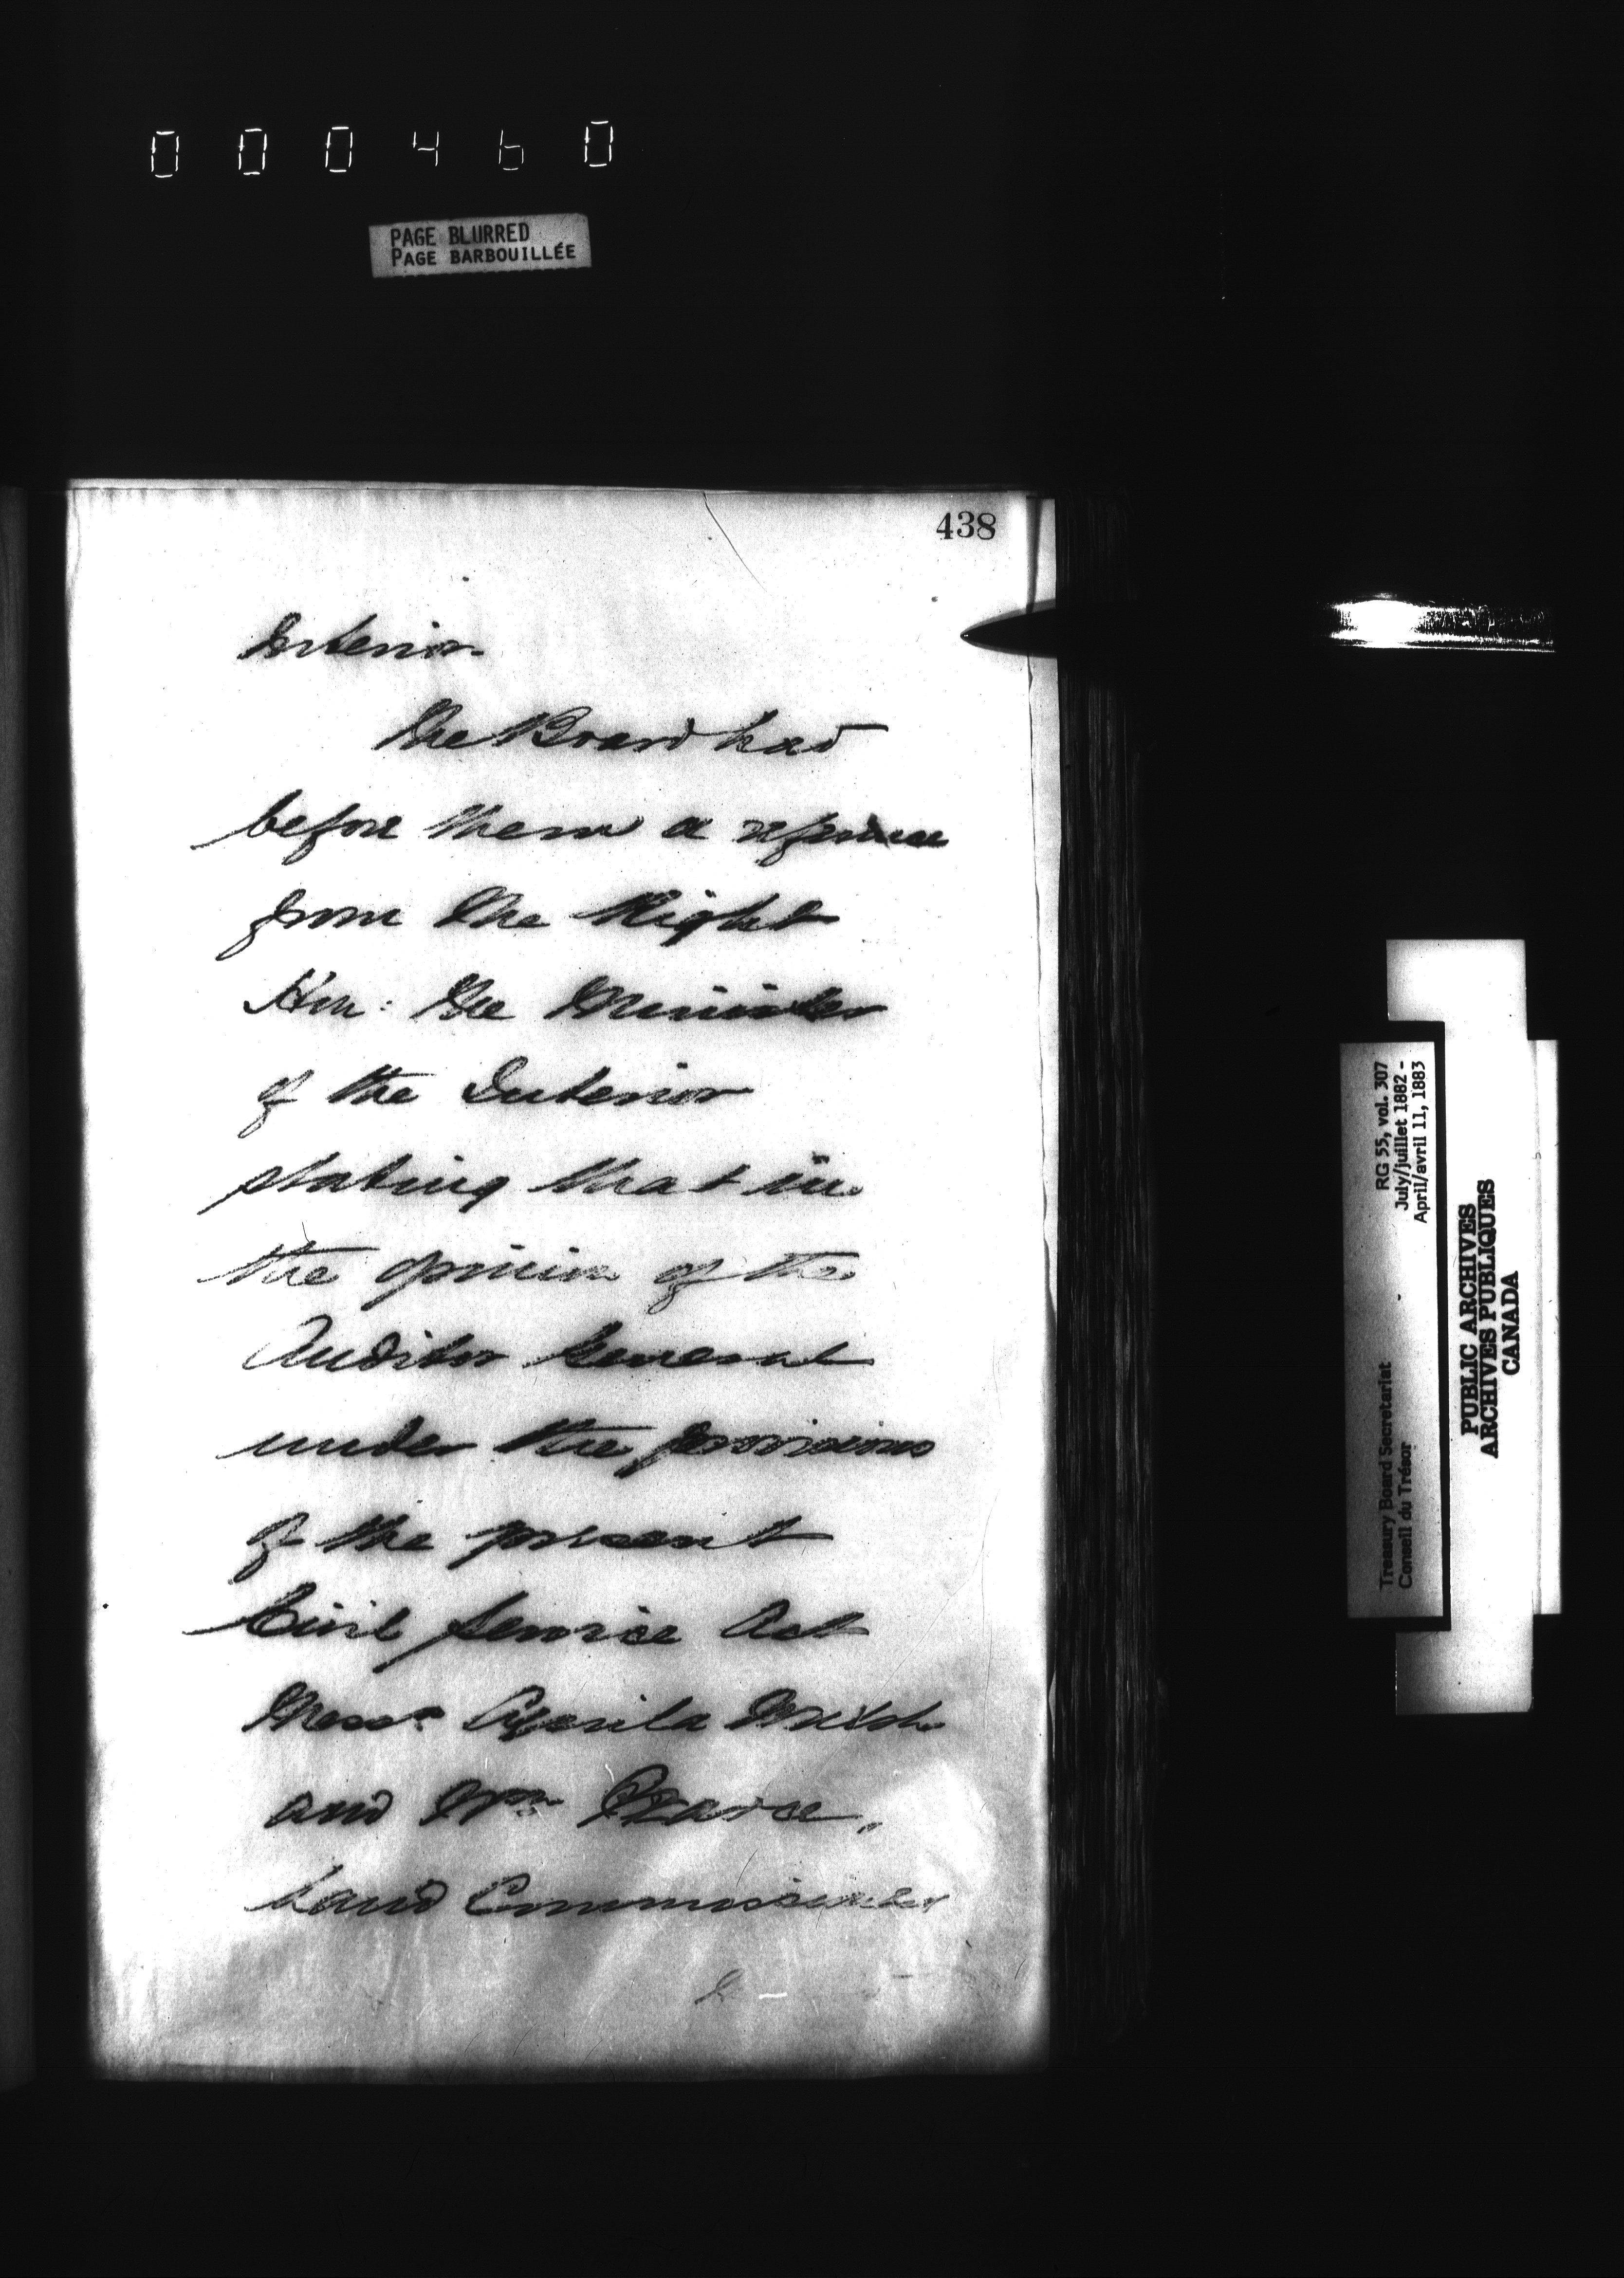 000460
PAGE BLURRED
PAGE BARBOUILLÉE
438
Interior
The Board had
before them a reference
from the Right
Hon: the Minister
of the Interior
stating that in
the opinion of the
Auditor General
under the provisions
of the present
Civil Service Act
Messrs Aquila Walsh
and Wm Pearce,
Land Commissioner
RG 55, vol. 307
July/juillet 1882 -
April/avril 11, 1883
Treasury Board Secretariat
Conseil du Trésor
PUBLIC ARCHIVES
ARCHIVES PUBLIQUES
CANADA